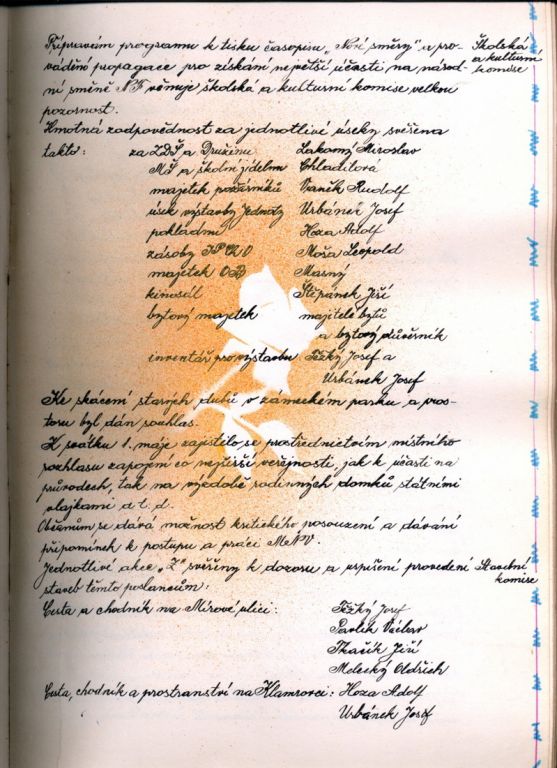 Přípravám programu k tisku časopisu „Nové směry" a pro- Školská
vádění propagace pro získání největší účasti na národ- a kulturní
ní směně NF věnuje školská a kulturní komise velkou komise
pozornost.
Hmotná zodpovědnost za jednotlivé úseky svěřena
takto: za ZDŠ a Družinu Lakomý Miroslav
MŠ a školní jídelnu Chladilová
majetek požárníků Vaněk Rudolf
úsek výstavby Jednoty Urbánek Josef
pokladní Hoza Adolf
zásoby Moša Leopold
majetek OB Masný
kinosál Štěpánek Jiří
bytový majetek majitelé bytů
a bytový důvěrník
inventář pro výstavbu Těžký Josef a
Urbánek Josef
Ke skácení starých dubů v zámeckém parku a pros-
toru byl dán souhlas.
K svátku 1. máje zajistilo se prostřednictvím místního
rozhlasu zapojení co nejširší veřejnosti, jak k účasti na
průvodech, tak na výzdobě rodinných domků státními
vlajkami a t. d.
Občanům se dává možnost kritického posouzení a dávání
připomínek k postupu a práci MěNV.
Jednotlivé akce „Z" svěřeny k dozoru a uspíšení provedení Stavební
staveb těmto poslancům: komise
Cesta a chodník na Mírové ulici: Těžký Josef
Pavlík Václav
Tkačík Jiří
Melecký Oldřich
Cesta, chodník a prostranství na Klamrovci: Hoza Adolf
Urbánek Josef